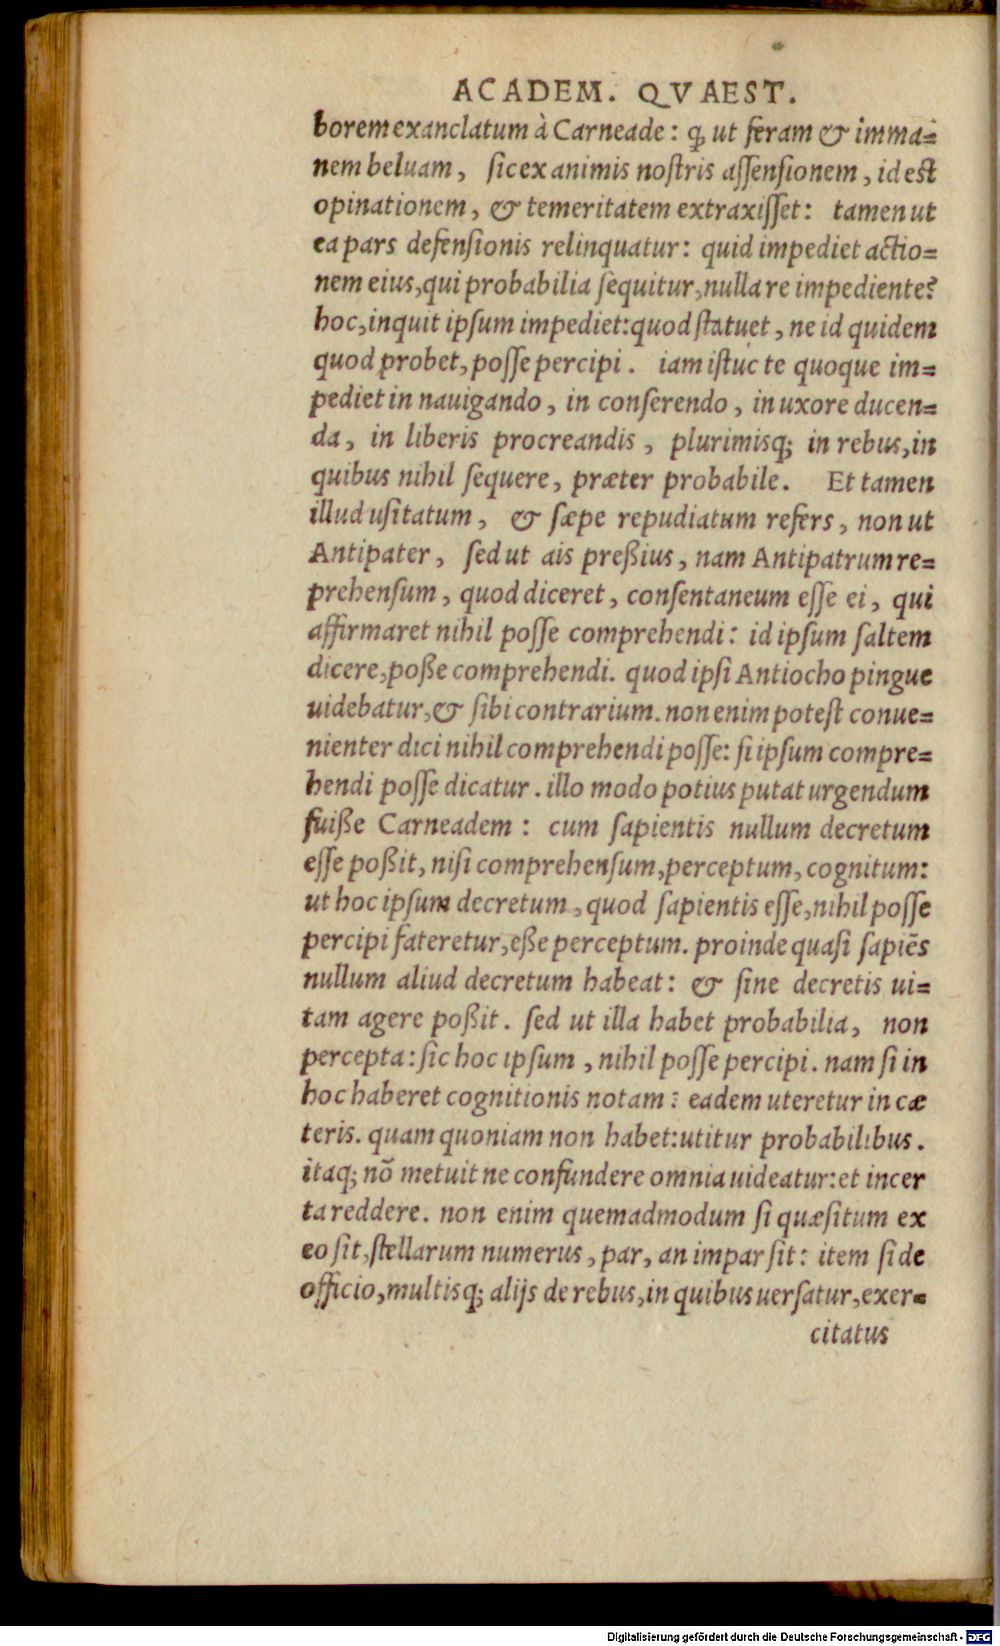 ACADEM. QVAEST.
borem exanclatum à Carneade: ꝙ ut feram & imma=
nem beluam, sic ex animis nostris assensionem, id est
opinationem, & temeritatem extraxisset: tamen ut
ea pars defensionis relinquatur: quid impediet actio=
nem eius, qui probabilia sequitur, nulla re impediente?
hoc, inquit ipsum impediet: quod statuet, ne id quidem
quod probet, posse percipi. iam istuc te quoque im=
pediet in nauigando, in conserendo, in uxore ducen=
da, in liberis procreandis, plurimisq; in rebus, in
quibus nihil sequere, præter probabile. Et tamen
illud usitatum, & sæpe repudiatum refers, non ut
Antipater, sed ut ais preßius, nam Antipatrum re=
prehensum, quod diceret, consentaneum esse ei, qui
affirmaret nihil posse comprehendi: id ipsum saltem
dicere, poße comprehendi. quod ipsi Antiocho pingue
uidebatur, & sibi contrarium. non enim potest conue=
nienter dici nihil comprehendi posse: si ipsum compre=
hendi posse dicatur. illo modo potius putat urgendum
fuiße Carneadem: cum sapientis nullum decretum
esse poßit, nisi comprehensum, perceptum, cognitum:
ut hoc ipsum decretum, quod sapientis esse, nihil posse
percipi fateretur, eße perceptum. proinde quasi sapiēs
nullum aliud decretum habeat: & sine decretis ui=
tam agere poßit. sed ut illa habet probabilia, non
percepta: sic hoc ipsum, nihil posse percipi. nam si in
hoc haberet cognitionis notam: eadem uteretur in cæ
teris. quam quoniam non habet: utitur probabilibus.
itaq; nō metuit ne confundere omnia uideatur: et incer
ta reddere. non enim quemadmodum si quæsitum ex
eo sit, stellarum numerus, par, an impar sit: item si de
officio, multisq; alijs de rebus, in quibus uersatur, exer=
citatus
Digitalisierung gefördert durch die Deutsche Forschungsgemeinschaft - DFG